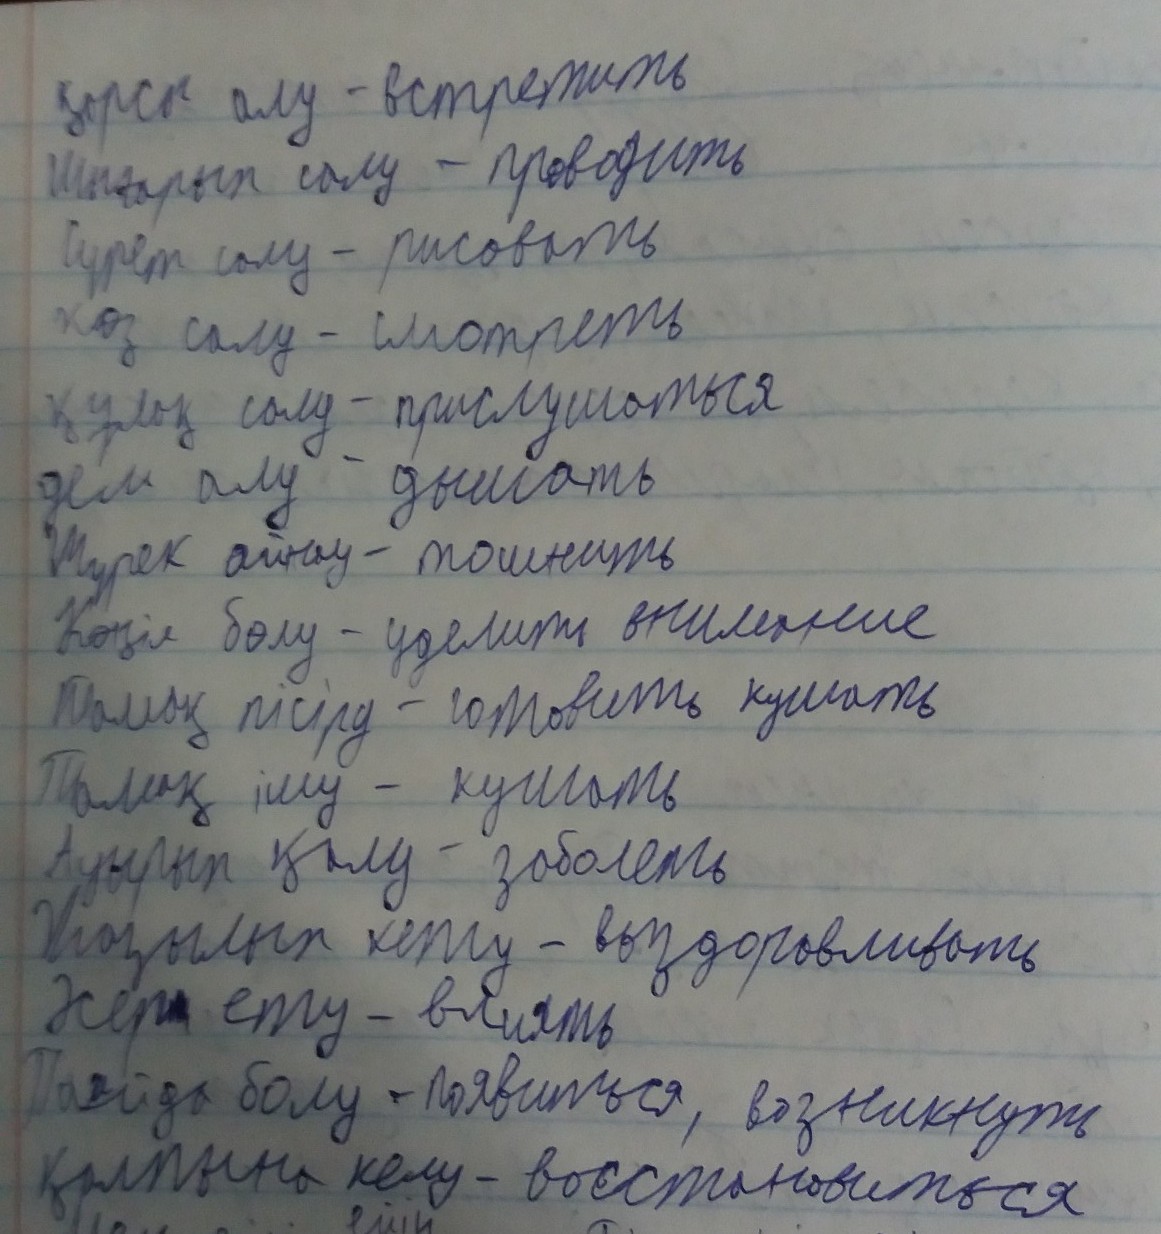 қарсы алу - встретить
Шығарып салу - проводить
Сурет салу - рисовать
Көз салу - смотреть
құлақ салу - прислушаться
дем алу - дышать
Жүрек айну - тошнить
Көңіл бөлу - уделить внимание
Тамақ пісіру - готовить кушать
Тамақ ішу - кушать
Ауырып қалу - заболеть
Жазылып кету - выздоравливать
Әсер ету - влиять
Пайда болу - появиться, возникнуть
қалпына келу - восстановиться